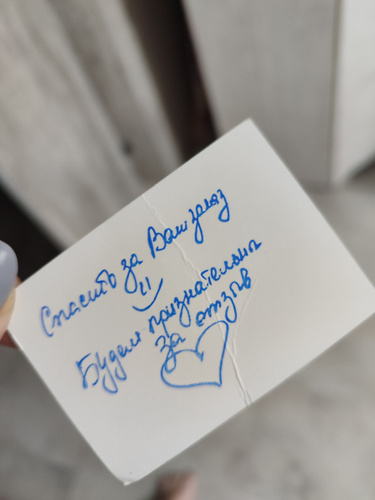 Спасибо за Ваш заказ
Будем признательны
за отзыв